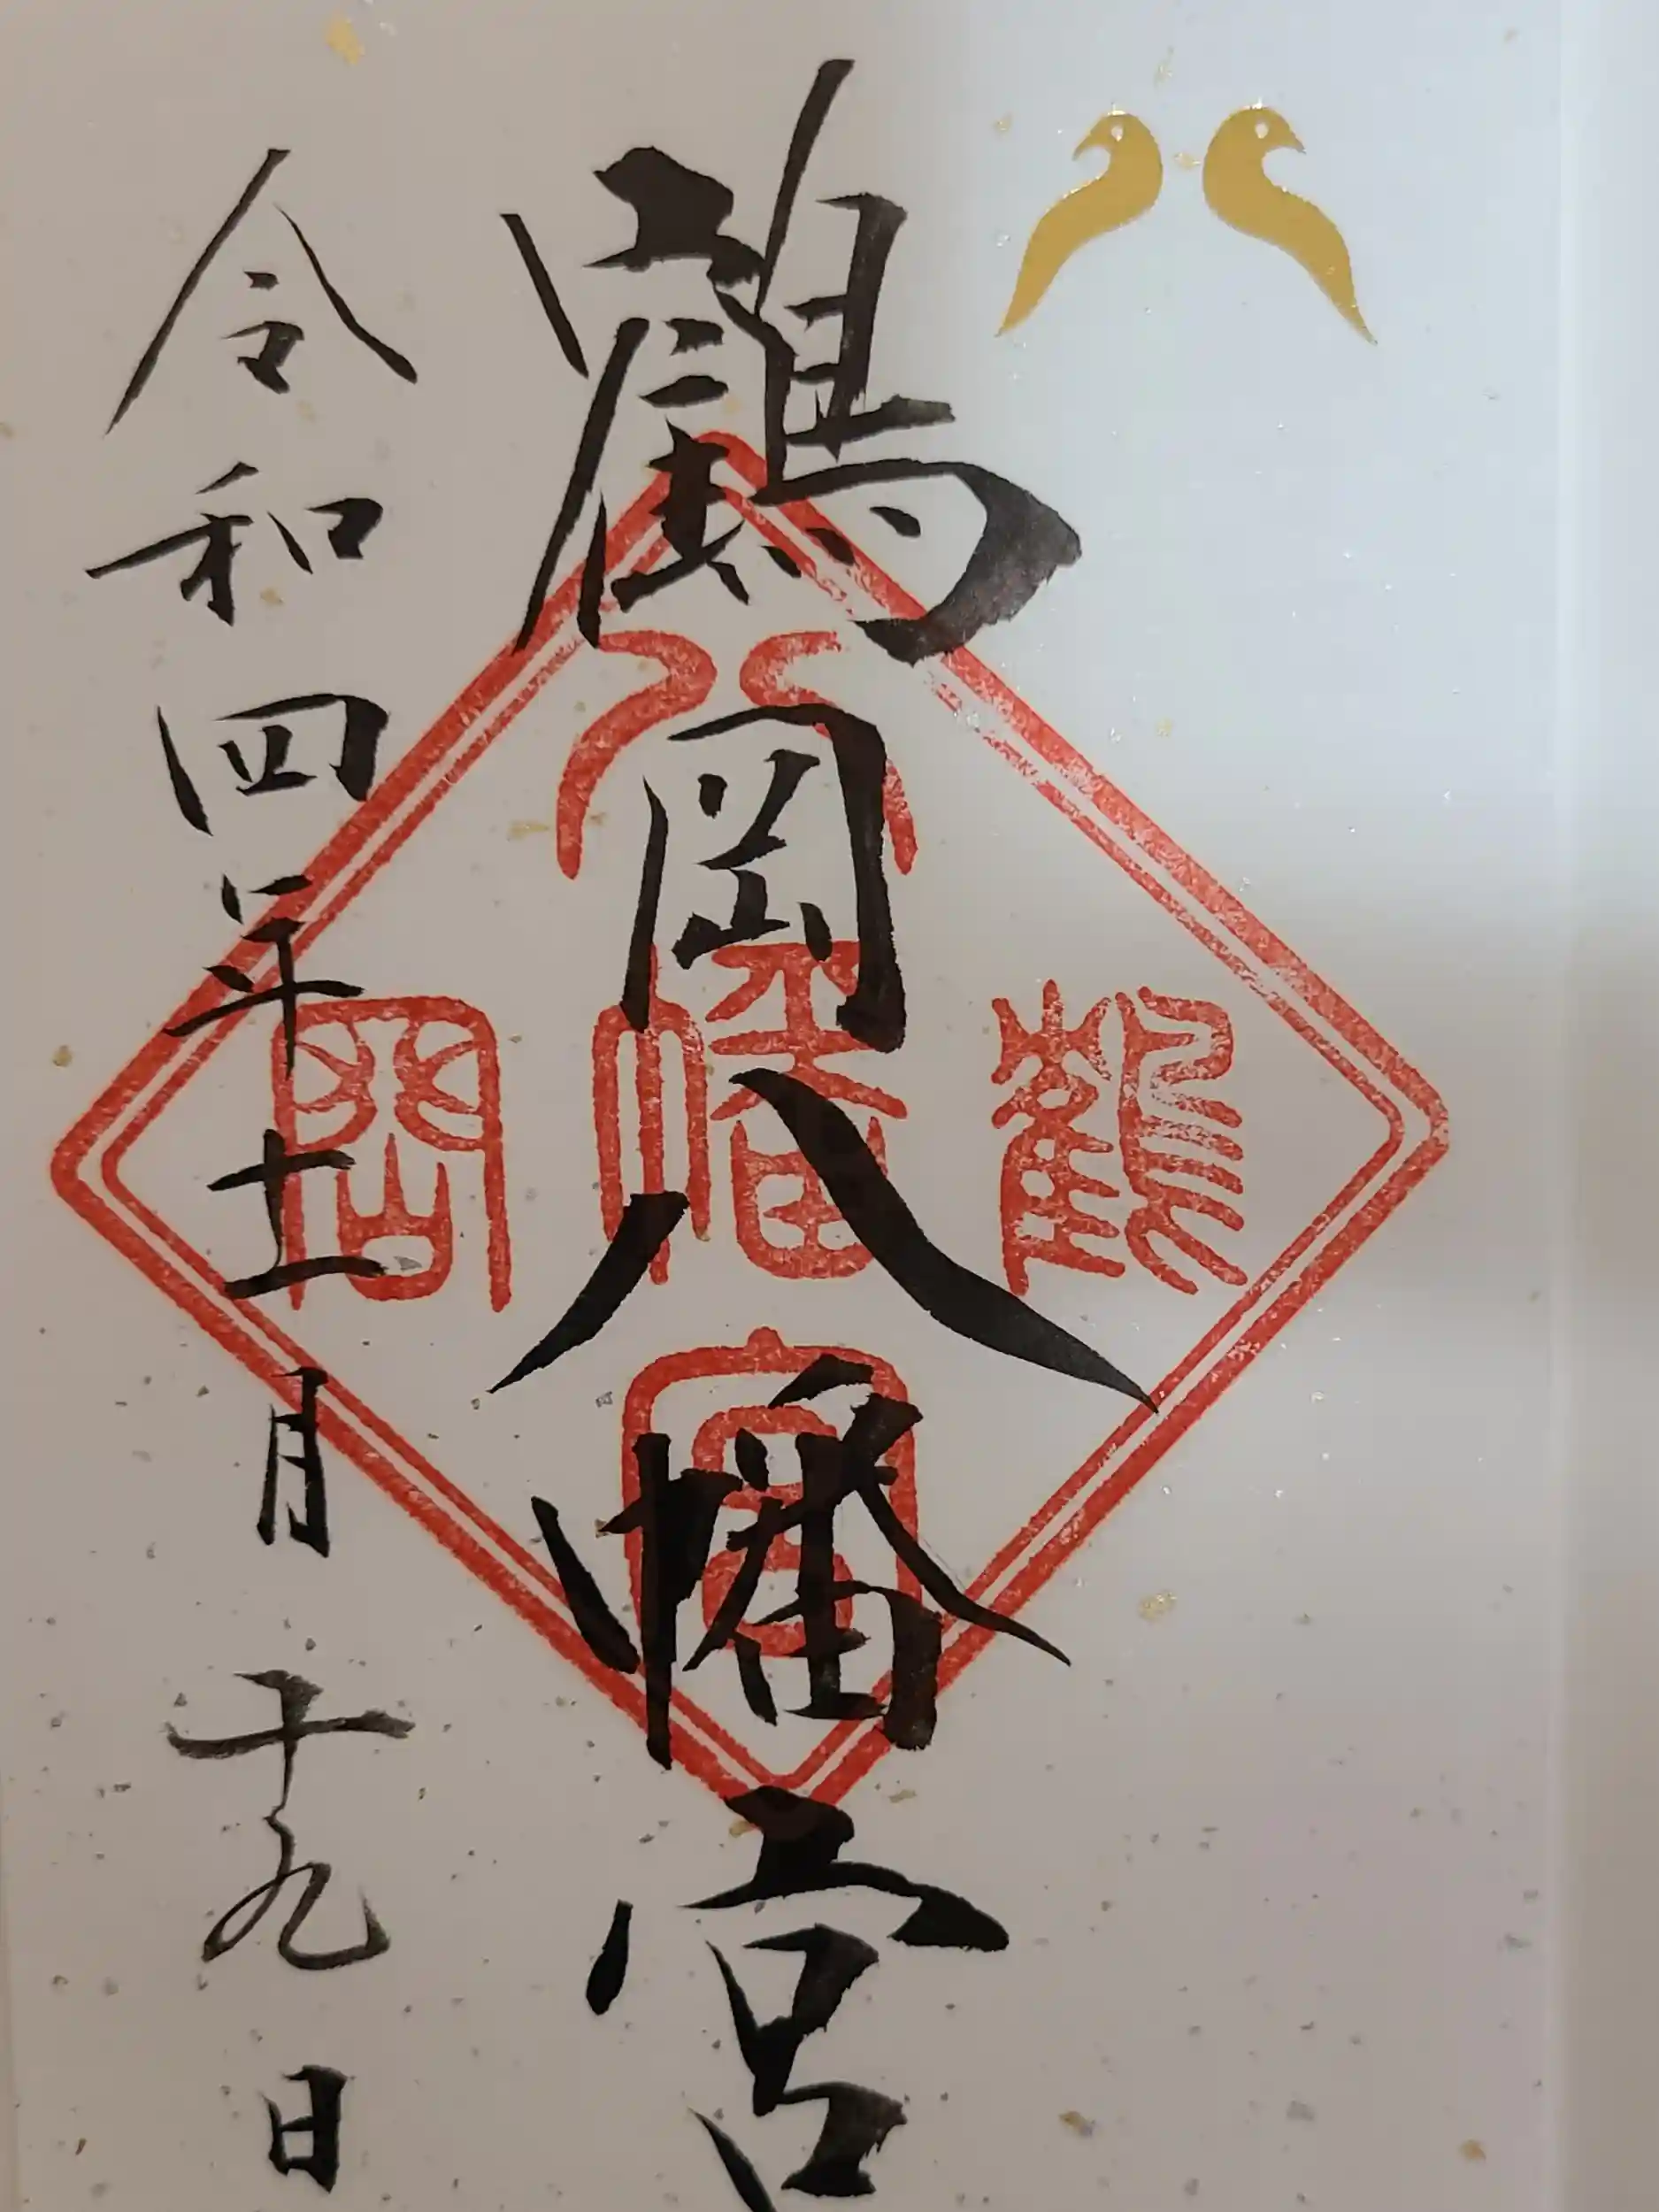 鶴岡八幡宮
鶴岡八幡宮
令和四年十一月十九日